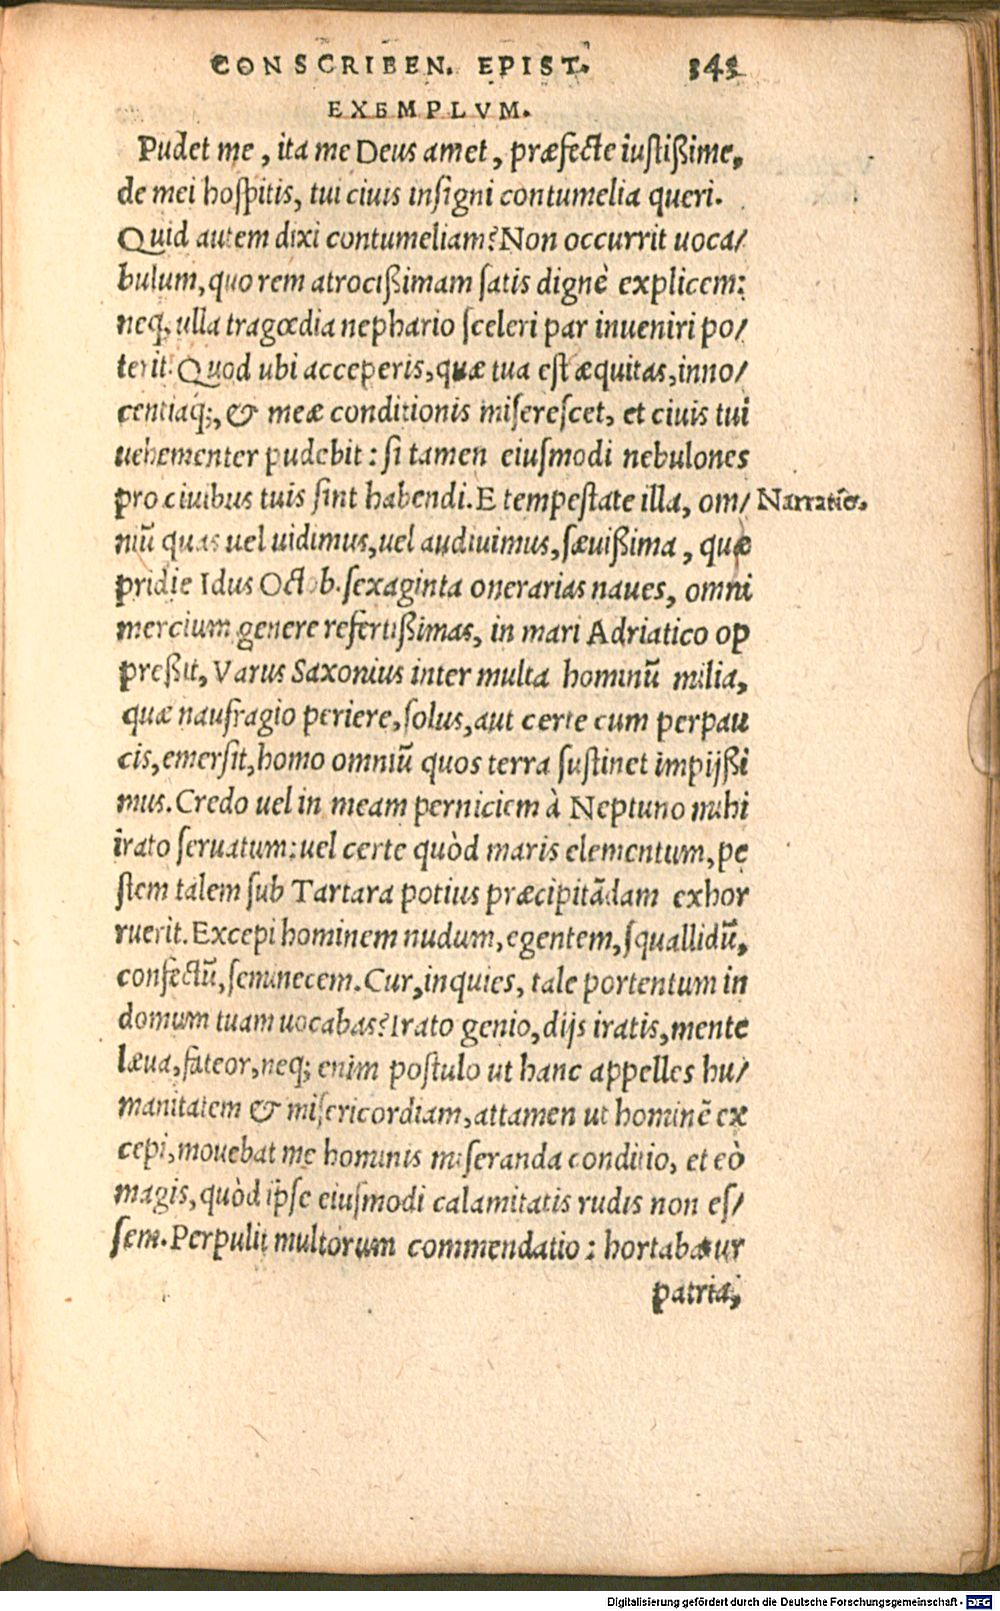 CONSCRIBEN. EPIST. 343
EXEMPLVM.
Pudet me, ita me Deus amet, præfecte iustißime,
de mei hospitis, tui ciuis insigni contumelia queri.
Quid autem dixi contumeliam? Non occurrit uoca/
bulum, quo rem atrocißimam satis dignè explicem:
neq; ulla tragœdia nephario sceleri par inueniri po/
terit. Quod ubi acceperis, quæ tua est æquitas, inno/
centiaq;, & meæ conditionis miserescet, et ciuis tui
uehementer pudebit: si tamen eiusmodi nebulones
pro ciuibus tuis sint habendi. E tempestate illa, om/
Narratiõ.
niũ quas uel uidimus, uel audiuimus, sæuißima, quæ
pridie Idus Octob. sexaginta onerarias naues, omni
mercium genere refertißimas, in mari Adriatico op
preßit, Varus Saxonius inter multa hominũ milia,
quæ naufragio periere, solus, aut certe cum perpau
cis, emersit, homo omniũ quos terra sustinet impijßi
mus. Credo uel in meam perniciem à Neptuno mihi
irato seruatum: uel certe quòd maris elementum, pe
stem talem sub Tartara potius præcipitãdam exhor
ruerit. Excepi hominem nudum, egentem, squallidũ,
confectũ, seminecem. Cur, inquies, tale portentum in
domum tuam uocabas? Irato genio, dijs iratis, mente
læua, fateor, neq; enim postulo ut hanc appelles hu/
manitatem & misericordiam, attamen ut hominẽ ex
cepi, mouebat me hominis miseranda conditio, et eò
magis, quòd ipse eiusmodi calamitatis rudis non es/
sem. Perpulit multorum commendatio: hortabatur
patria,
Digitalisierung gefördert durch die Deutsche Forschungsgemeinschaft - DFG